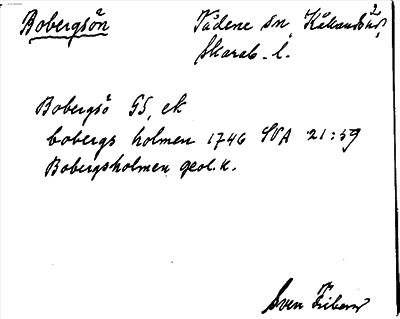 Bobergsön
Tådene sn, Kållands hd,
Skarab. l.
Bobergsö GS, ek
bobergs holmen 1746 SVA 21:59
Bobergsholmen geol.k.
Sven